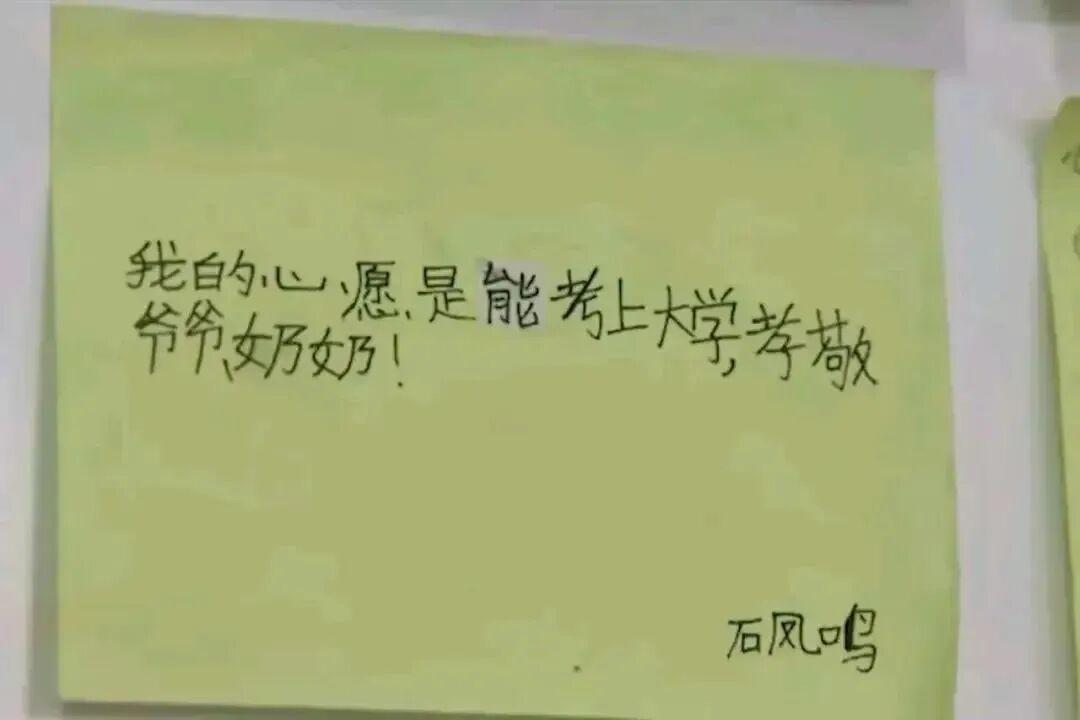 我的心愿是能考上大学,孝敬
爷爷、奶奶!
石凤鸣